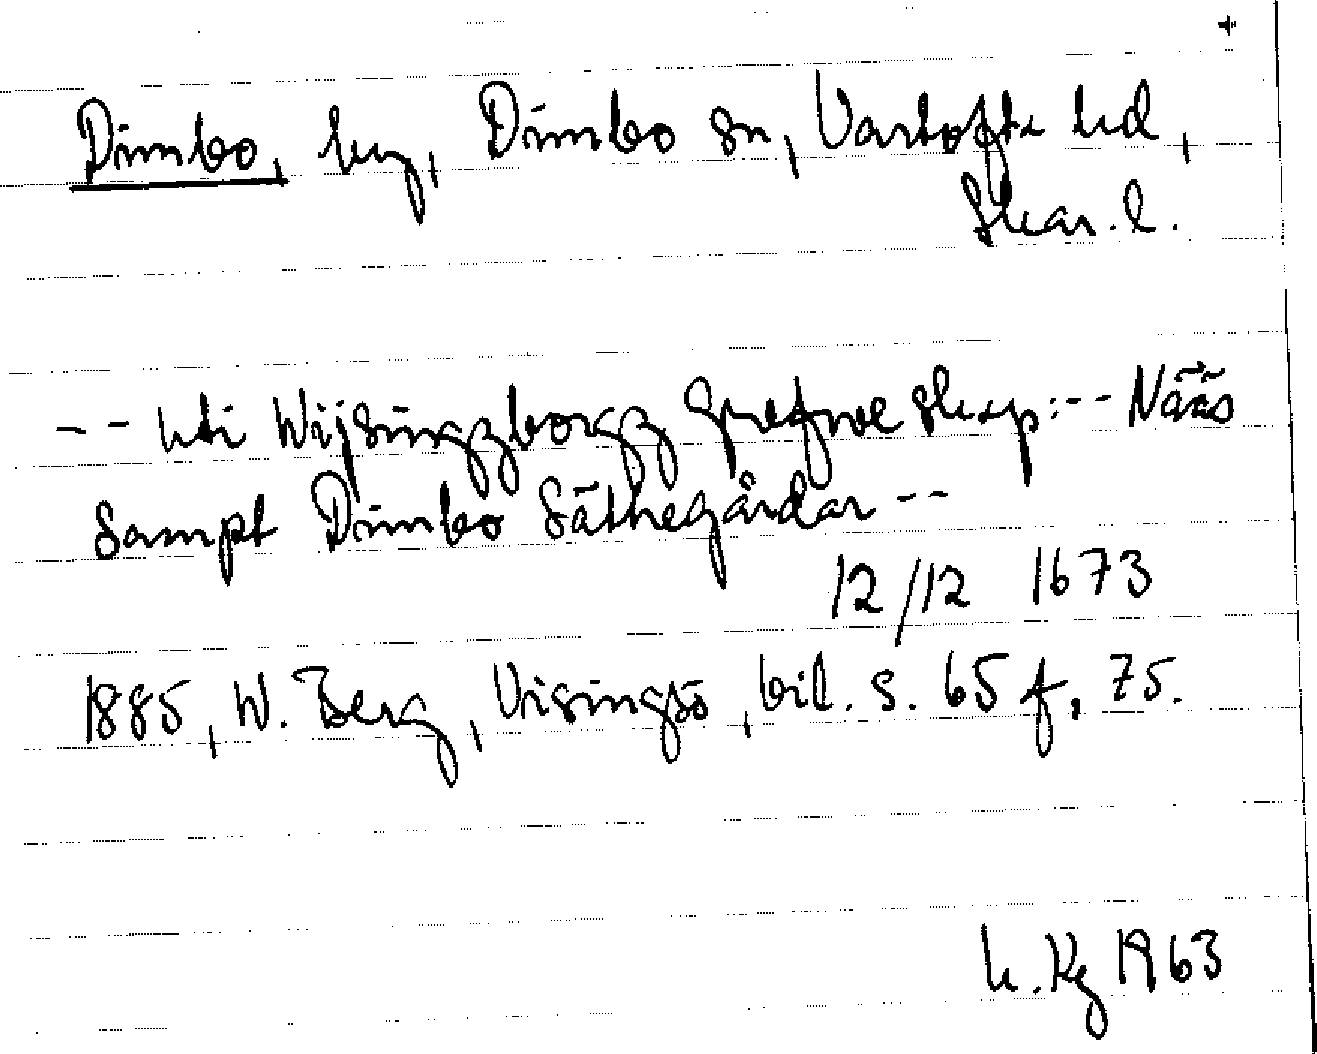 +
Dimbo, by, Dimbo sn, Vartofta hd,
Skar. l.
-- uti Wijsingzborgz Grefwe skap: -- Näås
Sampt Dimbo Säthegårdar --
12/12 1673
1885, W. Berg, Visingsö, bil. s. 65 f, 75.
1963